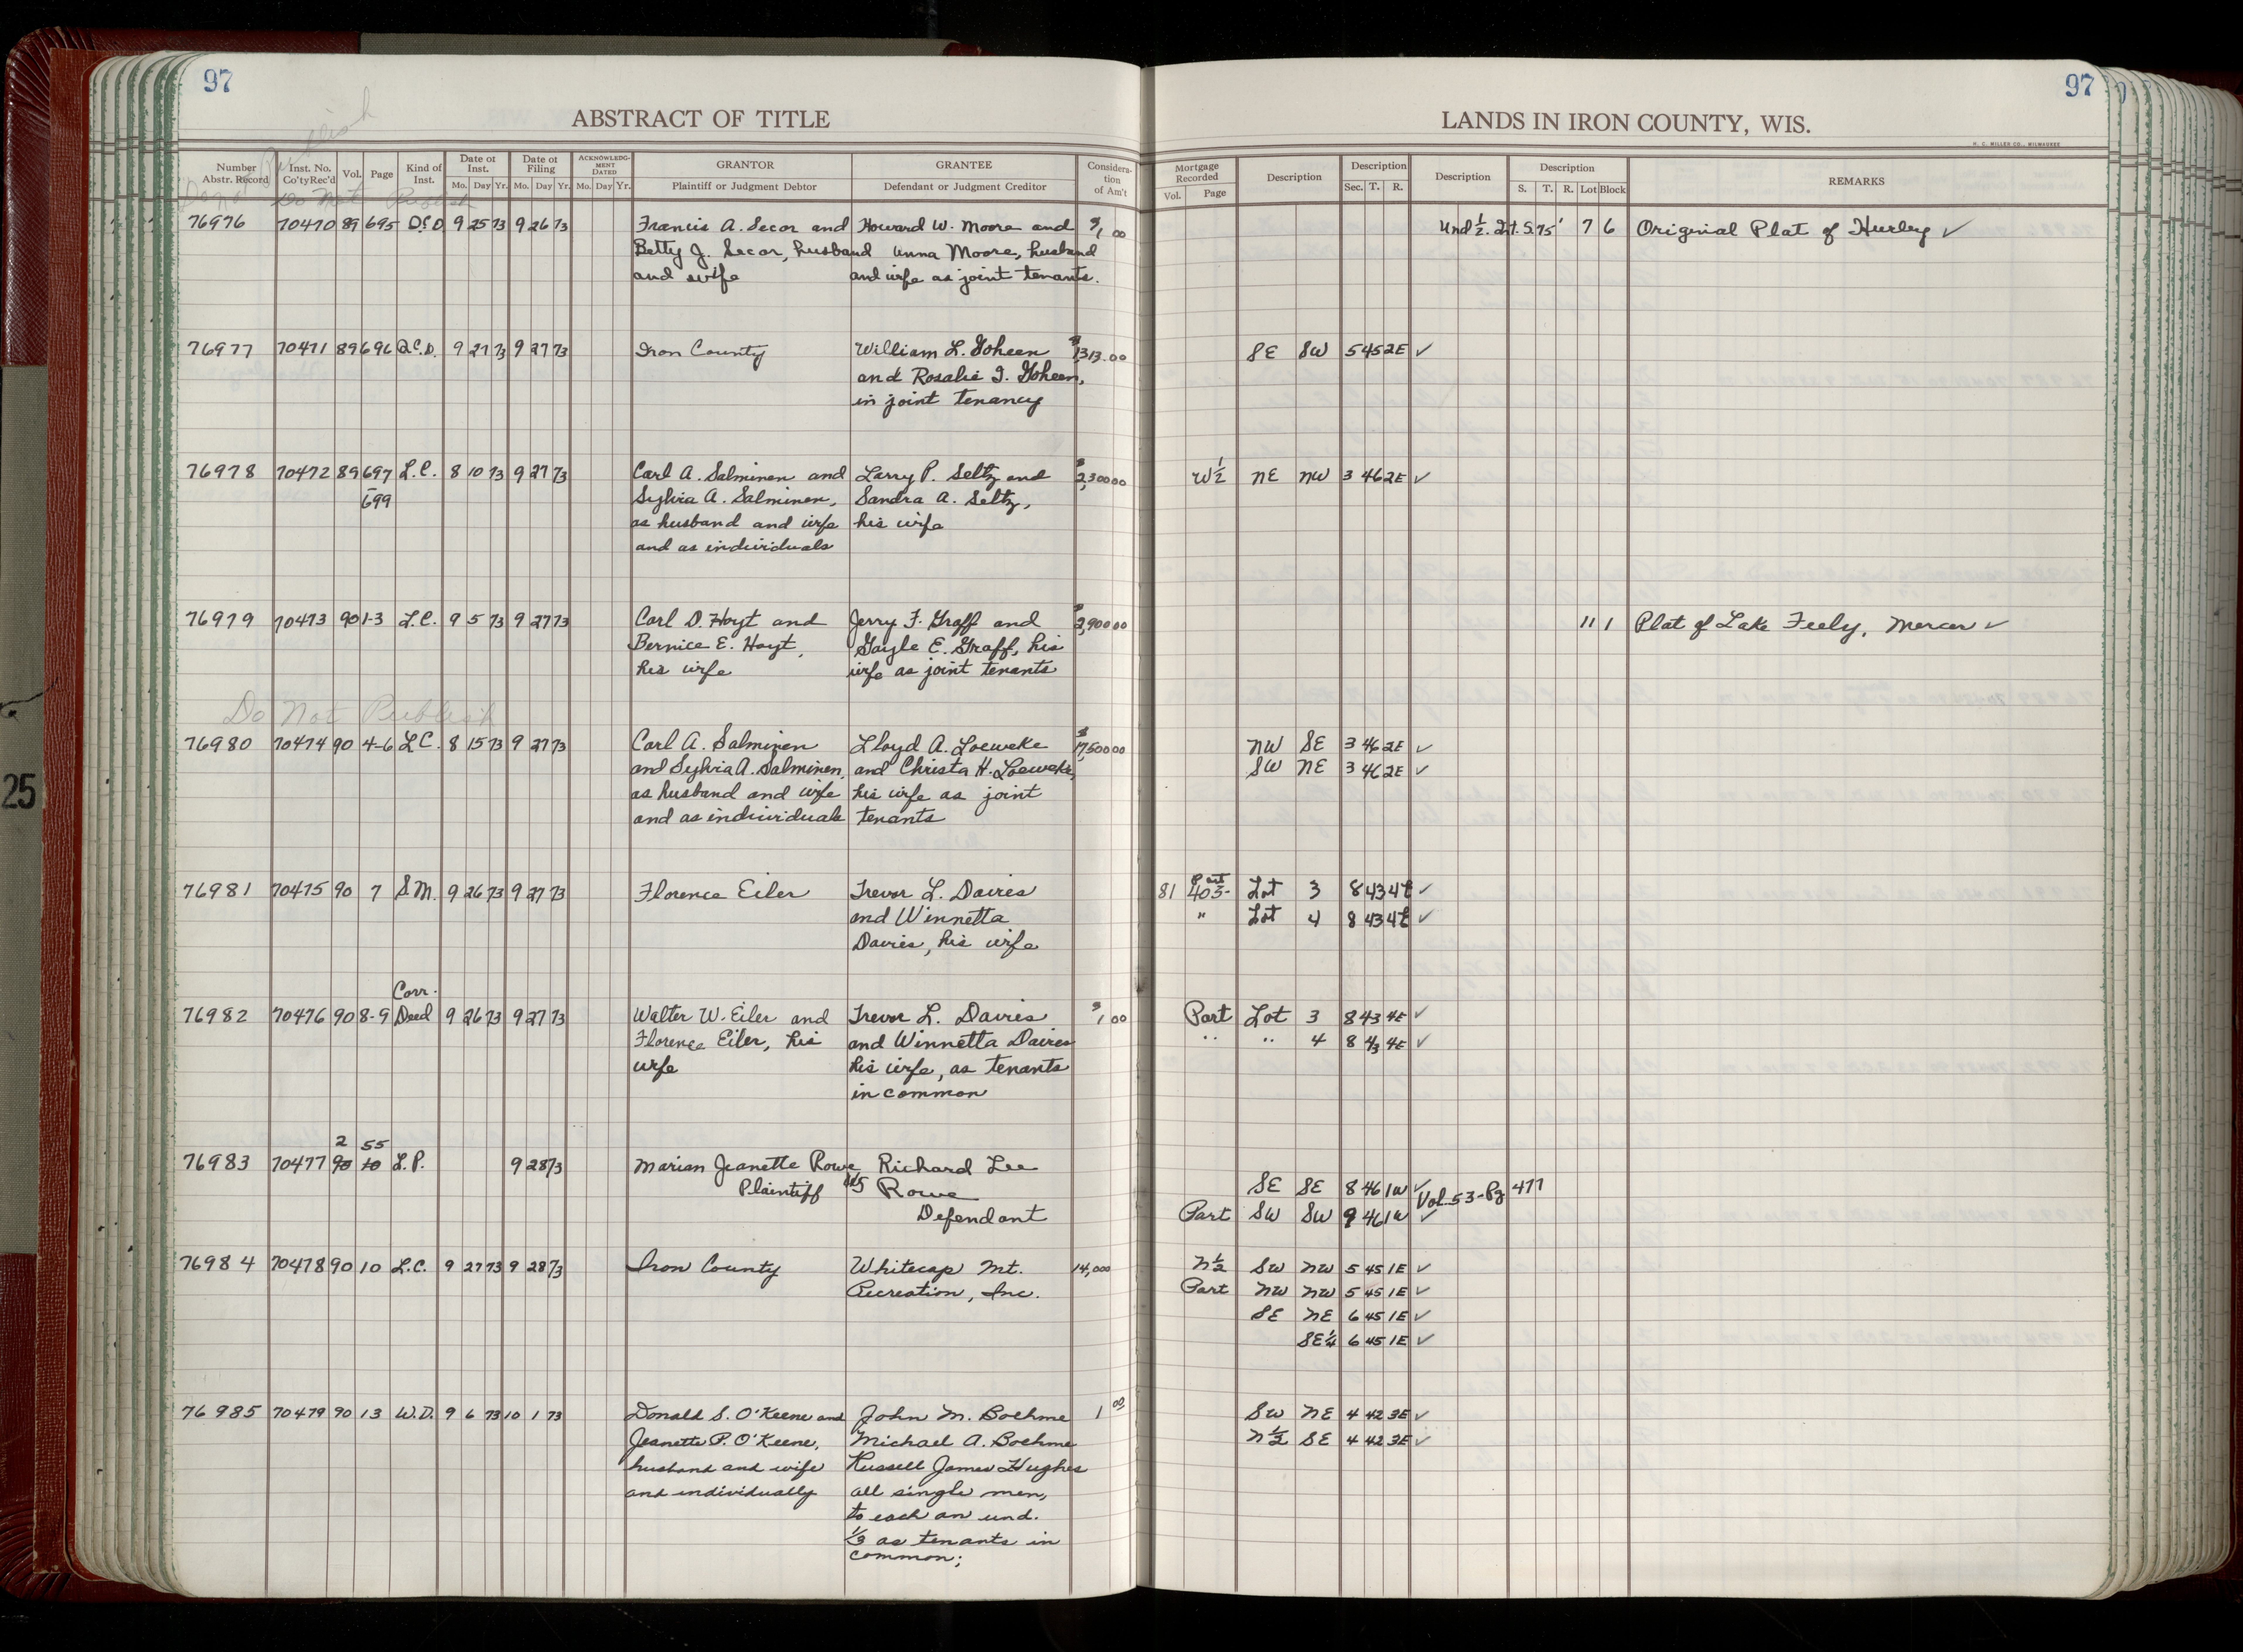 97
ABSTRACT OF TITLE
Do Not Publish
Number Abstr. Record
Inst. No. Co'tyRec'd
Vol.
Page
Kind of Inst.
Date of Inst.
Mo. Day Yr.
Date of Filing
Mo. Day Yr.
ACKNOWLEDGMENT DATED
Mo. Day Yr.
GRANTOR
Plaintiff or Judgment Debtor
GRANTEE
Defendant or Judgment Creditor
Consideration of Am't
76976 70470 89 695 9 25 73 9 26 73 Francis A. Secor and Howard W. Moore and $1 00
Betty J. Secor, husband Unna Moore, husband
and wife and wife as joint tenants.
76977 70471 89 696 Q.C.D. 9 27 73 9 27 73 Iron County William L. Goheen $1313.00
and Rosalie I. Goheen,
in joint tenancy
76978 70472 89 697 L.C. 8 10 73 9 27 73 Carl A. Salminen and Larry P. Seltz and $2,300 00
- 699 Sylvia A. Salminen, Sandra A. Seltz,
as husband and wife his wife
and as individuals
76979 70473 90 1-3 L.C. 9 5 73 9 27 73 Carl D. Hoyt and Jerry F. Graff and $2,900 00
Bernice E. Hoyt, Gayle E. Graff, his
his wife wife as joint tenants
Do Not Publish
76980 70474 90 4-6 L.C. 8 15 73 9 27 73 Carl A. Salminen Lloyd A. Loeweke $17,500 00
and Sylvia A. Salminen, and Christa H. Loeweke,
as husband and wife his wife as joint
and as individuals tenants
76981 70475 90 7 S.M. 9 26 73 9 27 73 Florence Eiler Trevor L. Davies
and Winnetta
Davies, his wife
Corr.
76982 70476 90 8-9 Deed 9 26 73 9 27 73 Walter W. Eiler and Trevor L. Davies $1 00
Florence Eiler, his and Winnetta Davies
wife his wife, as tenants
in common
2 55
76983 70477 90 10 L.P. 9 28 73 Marian Jeanette Rowe, Richard Lee
Plaintiff vs Rowe
Defendant
76984 70478 90 10 L.C. 9 27 73 9 28 73 Iron County Whitecap Mt. 14,000
Recreation, Inc.
76985 70479 90 13 W.D. 9 6 73 10 1 73 Donald S. O'Keene and John M. Boehme 1 00
Jeanette P. O'Keene, Michael A. Boehme
husband and wife Russell James Hughes
and individually all single men,
to each an und.
1/3 as tenants in
common;
25
97
LANDS IN IRON COUNTY, WIS.
H. C. MILLER CO., MILWAUKEE
Mortgage Recorded
Vol. Page
Description
Description
Sec. T. R.
Description
Description
S. T. R. Lot Block
REMARKS
Und 1/2 Int. S. 75' 7 6 Original Plat of Hurley ✓
SE SW 5 45 2E ✓
W 1/2 NE NW 3 46 2E ✓
11 1 Plat of Lake Feely, Mercer ✓
NW SE 3 46 2E ✓
SW NE 3 46 2E ✓
Part
81 403- Lot 3 8 43 4E ✓
" Lot 4 8 43 4E ✓
Part Lot 3 8 43 4E ✓
" " 4 8 43 4E ✓
SE SE 8 46 1W ✓ Vol. 53-Pg 477
Part SW SW 9 46 1W ✓
N 1/2 SW NW 5 45 1E ✓
Part NW NW 5 45 1E ✓
SE NE 6 45 1E ✓
SE 1/4 6 45 1E ✓
SW NE 4 42 3E ✓
N 1/2 SE 4 42 3E ✓